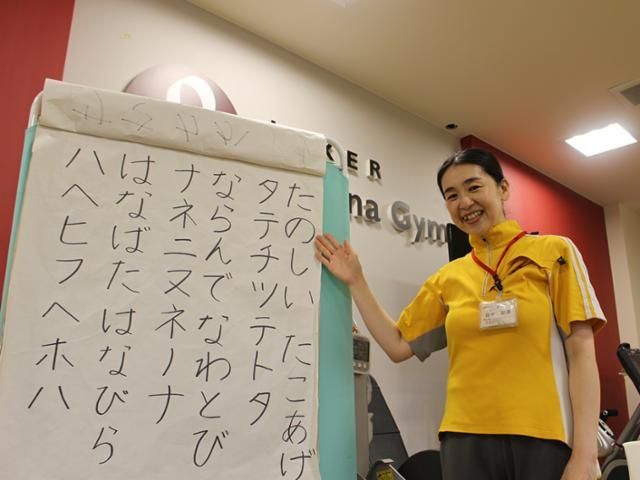 たのしい たこあげ
タテチツテトタ
ならんでなわとび
ナネニヌネノナ
はなばたはなびら
ハヘヒフヘホハ
KER
na Gym